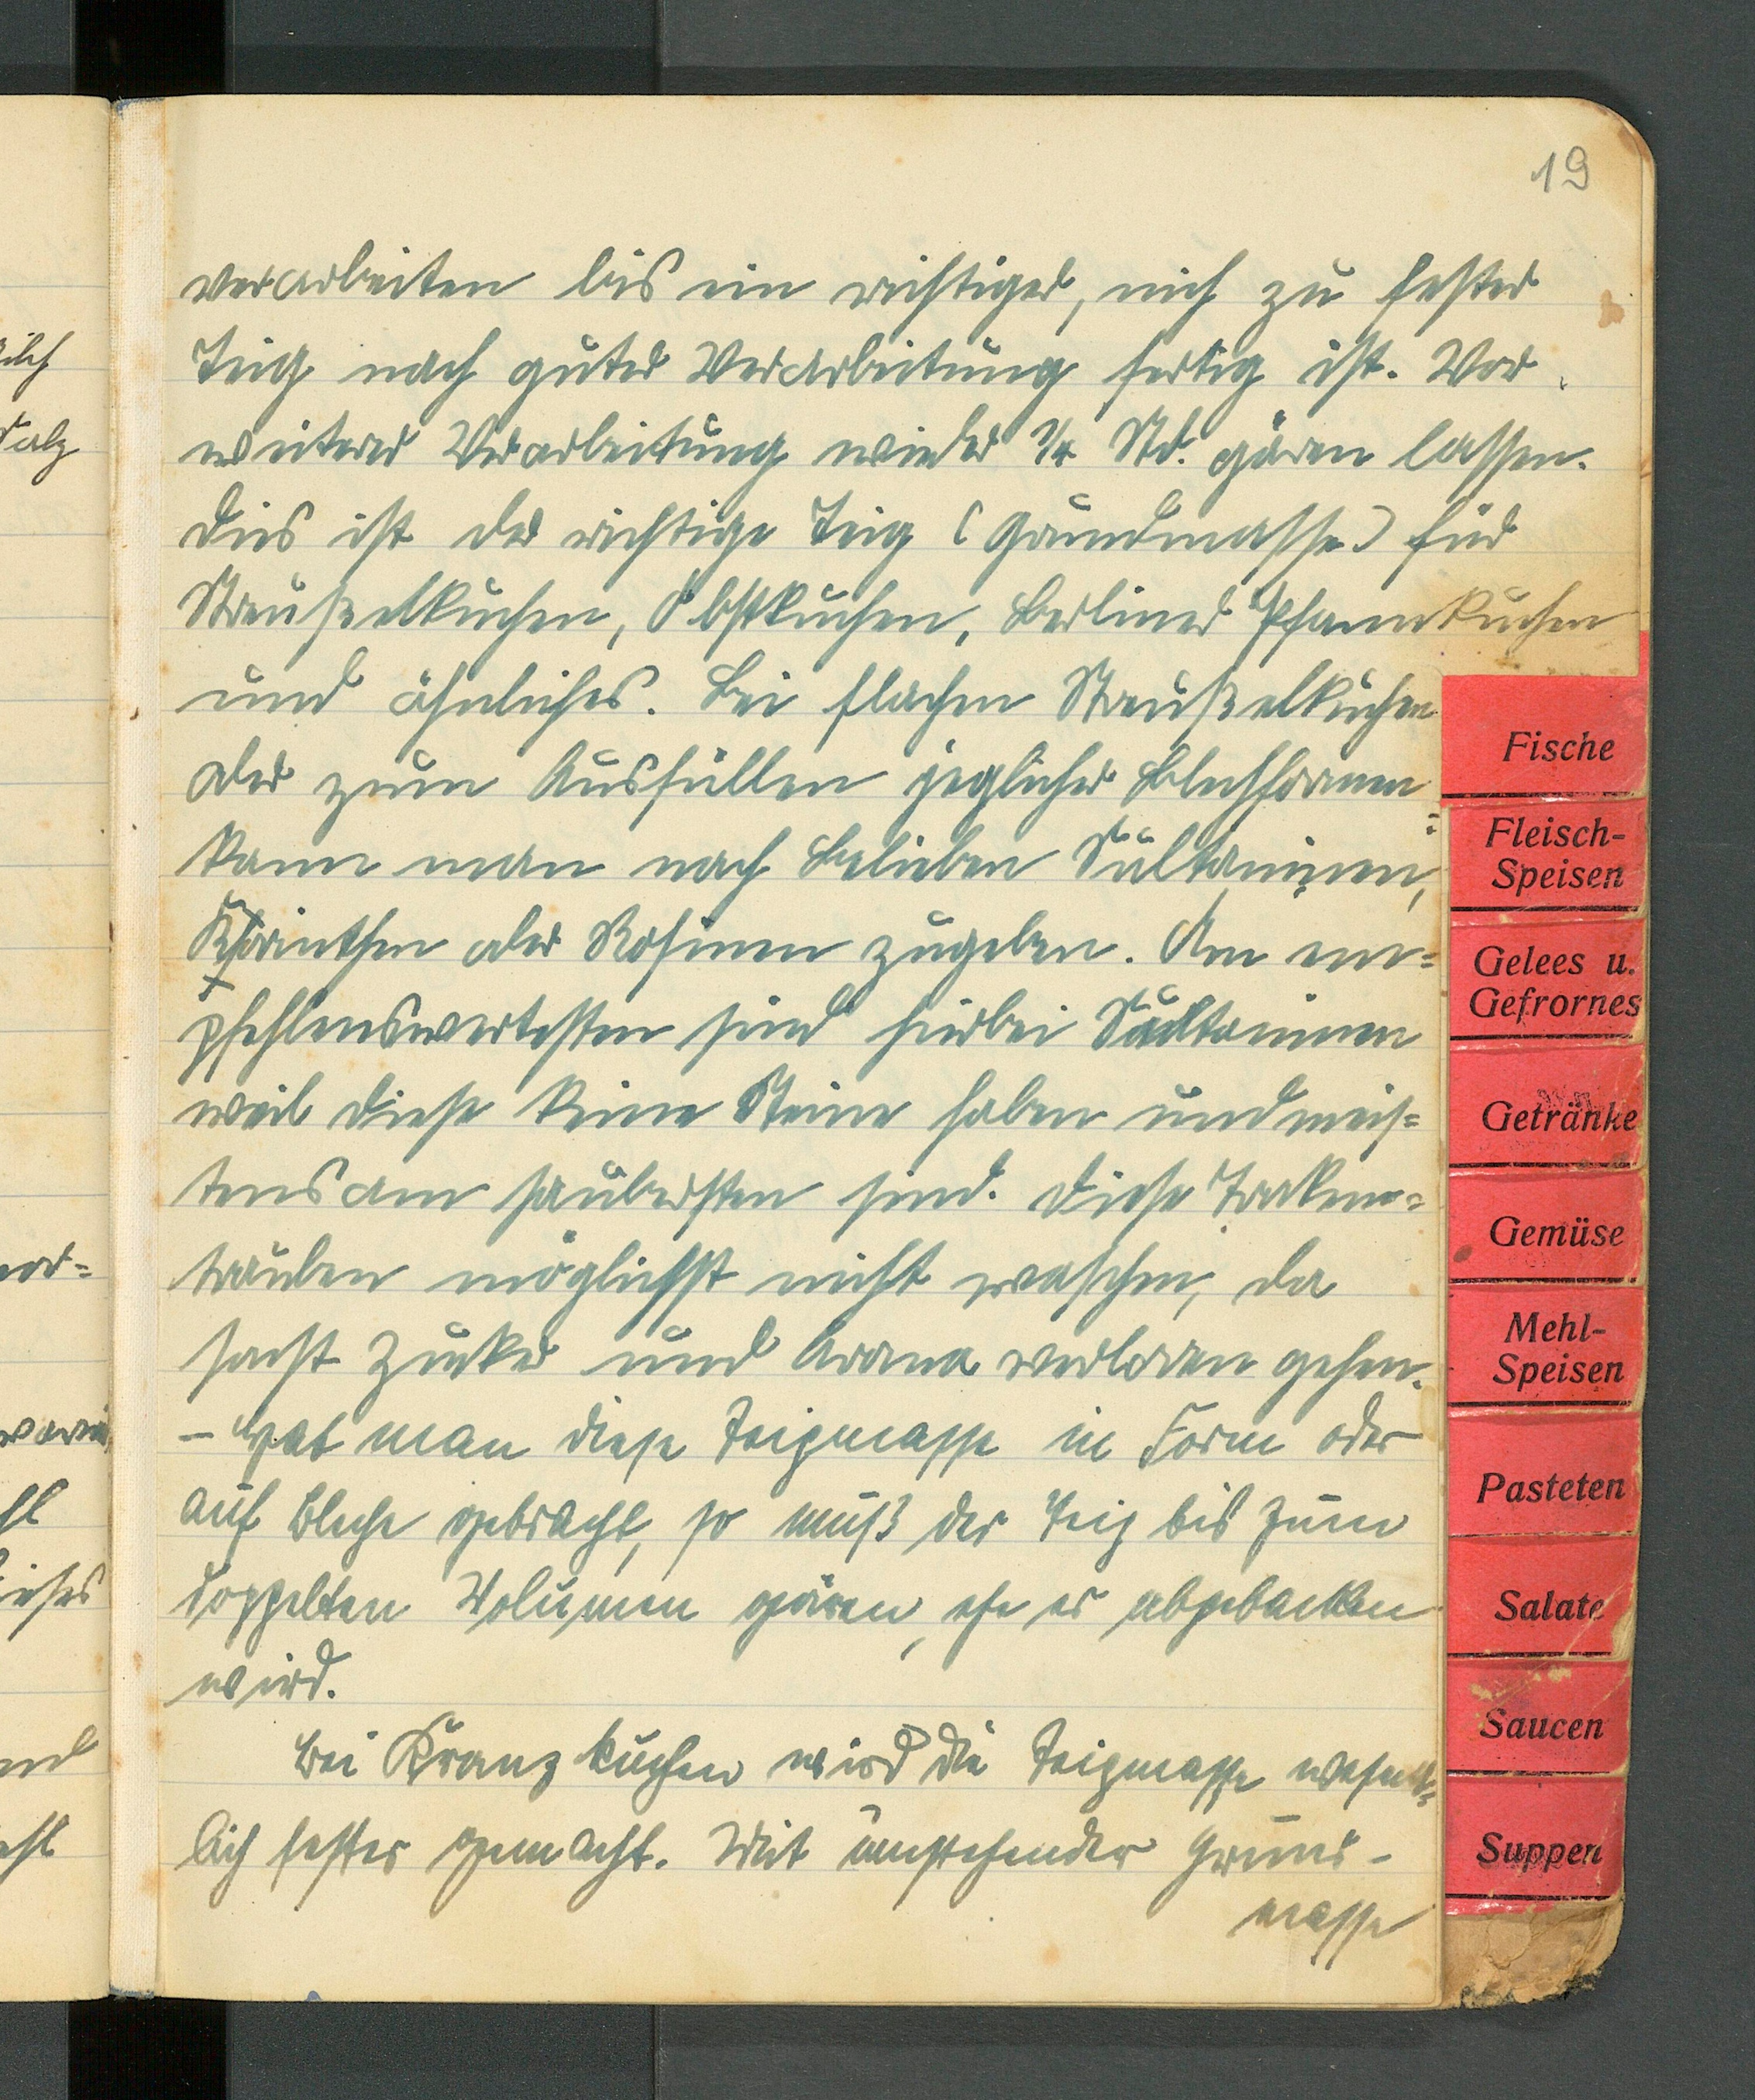 19
verarbeiten bis ein richtiger, nich zu fester
Teig nach guter Verarbeitung fertig ist. Vor
weiterer Verarbeitung wieder ¼ Std. gären lassen.
Dies ist der richtige Teig (Grundmasse) für
Streußelkuchen, Obstkuchen, Berliner Pfannkuchen
und ähnliches. Bei flachen Streußelkuchen
oder zum Ausfüllen jeglicher Blechformen
kann man nach Belieben Sultaninen,
Korinthen oder Rosinen zugeben. Am em=
pfehlenswertesten sind hierbei Sultaninen
weil diese keine Steine haben und meis=
tens am saubersten sind. Diese Trocken=
trauben möglichst nicht waschen, da
sonst Zucker und Aroma verloren gehen.
– Hat man diese Teigmasse in Form oder
auf Bleche gebracht, so muß der Teig bis zum
doppelten Volumen gären, ehe er abgebacken
wird.
Bei Kranzkuchen wird die Teigmasse wesent=
lich fester gemacht. Mit umstehender Grund-
masse
Fische
Fleisch-
Speisen
Gelees u.
Gefrornes
Getränke
Gemüse
Mehl-
Speisen
Pasteten
Salate
Saucen
Suppen